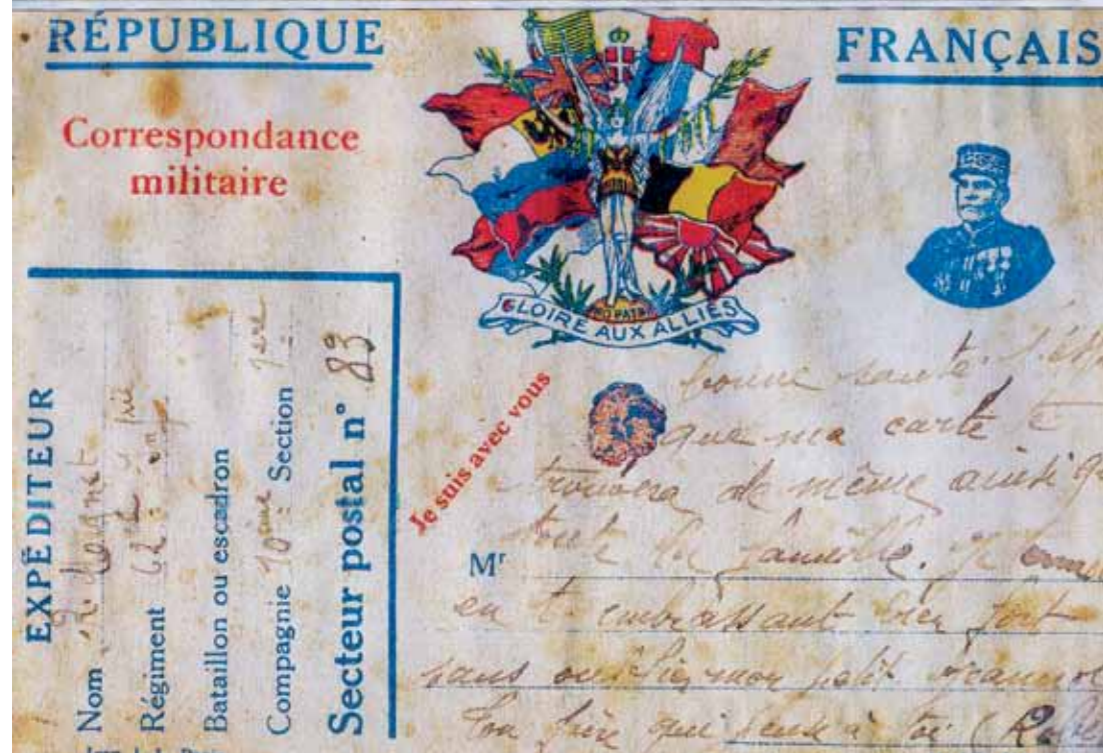 RÉPUBLIQUE
FRANÇAIS
Correspondance
militaire
GLOIRE AUX ALLIÉS
Je suis avec vous
EXPÉDITEUR
Nom
Régiment 62e
Bataillon ou escadron
Compagnie 10ème Section 1ere
Secteur postal n° 83
bonne santé. J'
que ma carte t
trouvera de même ainsi q
toute la famille. Je
Mr
en t'embrassant bien fort
sans oublier mon petit
Ton frère qui pense à toi